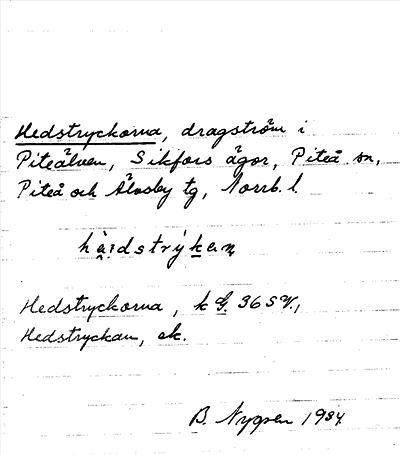 Hedstryckorna, dragström i
Piteälven, Sikfors ägor, Piteå sn,
Piteå och Älvsby tg, Norrb. l.
hä̀ːdstrýkan
Hedstryckorna, k G. 36 SV.,
Hedstryckan, ek.
B. Nygren 1934